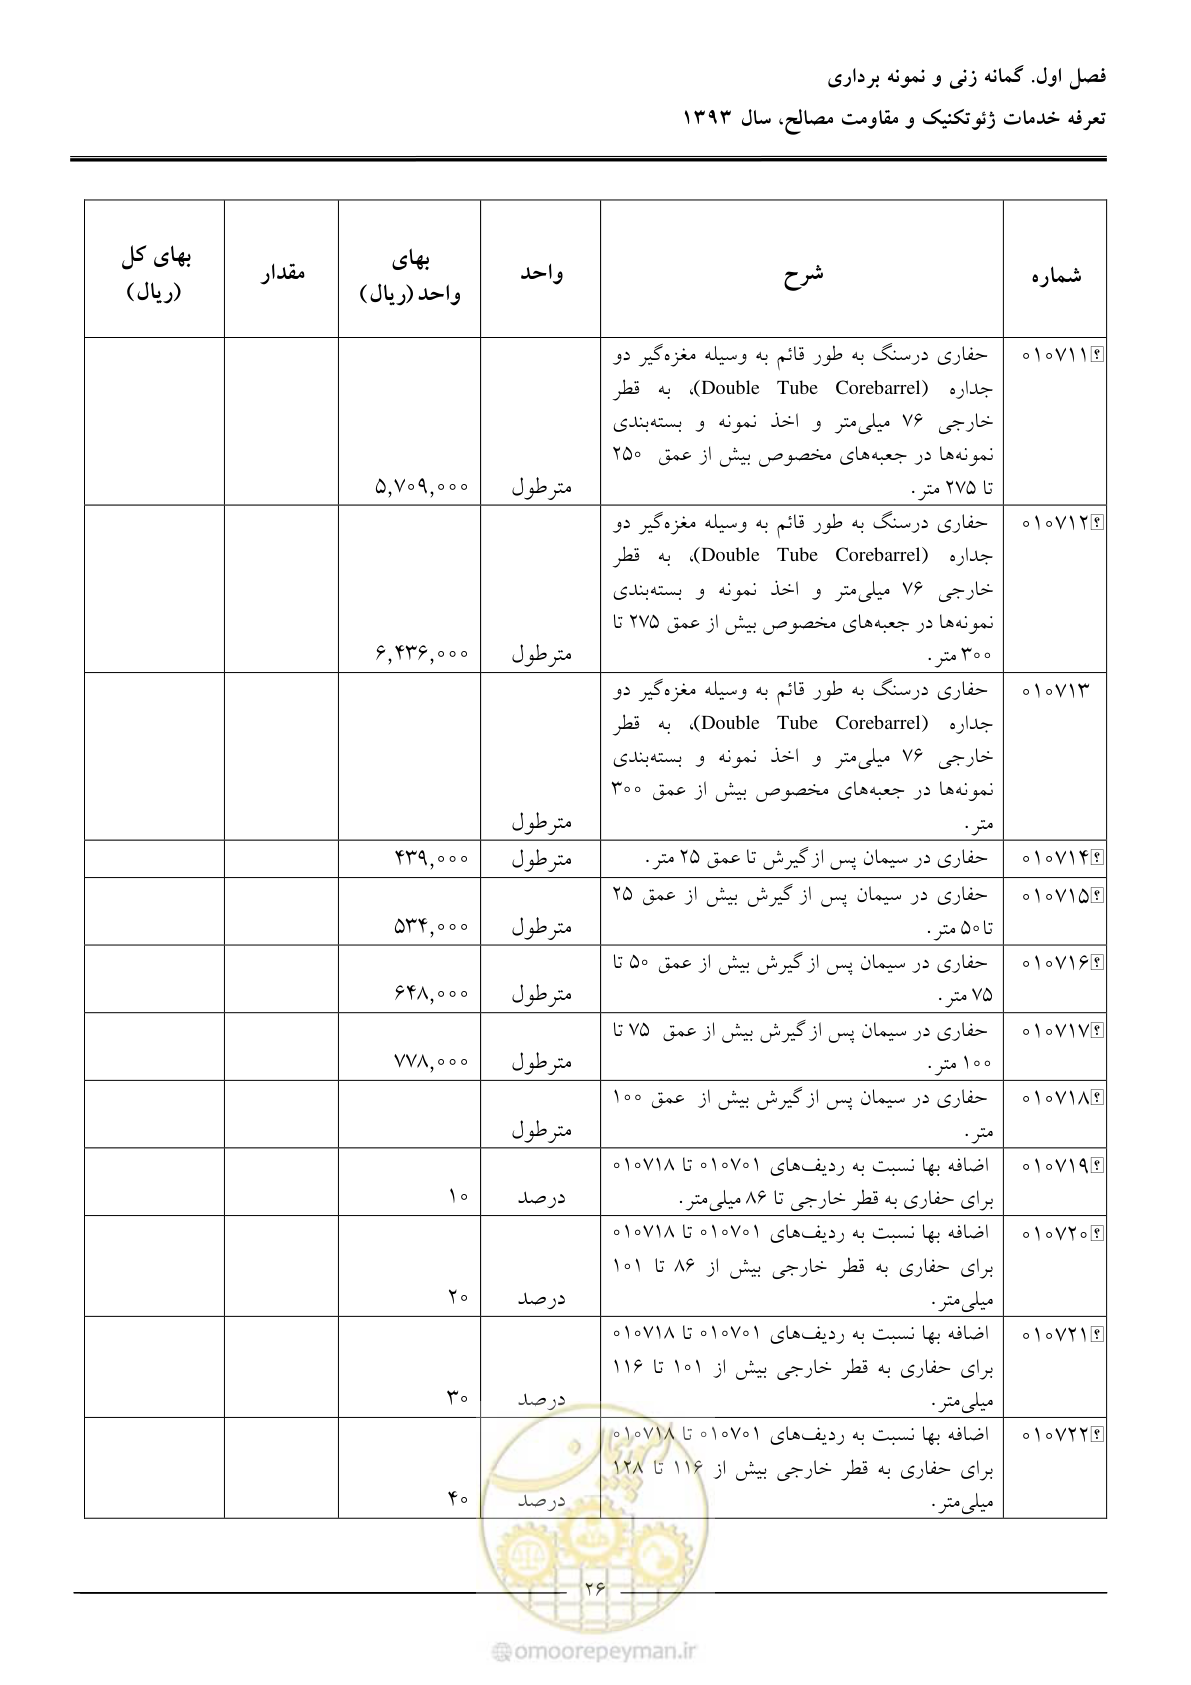 فصل اول. گمانه زنی و نمونه برداری
تعرفه خدمات ژئوتکنیک و مقاومت مصالح، سال ۱۳۹۳
شماره
شرح
واحد
بهای
واحد(ریال)
مقدار
بهای کل
(ریال)
۰۱۰۷۱۱
حفاری درسنگ به طور قائم به وسیله مغزه‌گیر دو
جداره (Double Tube Corebarrel)، به قطر
خارجی ۷۶ میلی‌متر و اخذ نمونه و بسته‌بندی
نمونه‌ها در جعبه‌های مخصوص بیش از عمق ۲۵۰
تا ۲۷۵ متر.
مترطول
۵,۷۰۹,۰۰۰
۰۱۰۷۱۲
حفاری درسنگ به طور قائم به وسیله مغزه‌گیر دو
جداره (Double Tube Corebarrel)، به قطر
خارجی ۷۶ میلی‌متر و اخذ نمونه و بسته‌بندی
نمونه‌ها در جعبه‌های مخصوص بیش از عمق ۲۷۵ تا
۳۰۰ متر.
مترطول
۶,۴۳۶,۰۰۰
۰۱۰۷۱۳
حفاری درسنگ به طور قائم به وسیله مغزه‌گیر دو
جداره (Double Tube Corebarrel)، به قطر
خارجی ۷۶ میلی‌متر و اخذ نمونه و بسته‌بندی
نمونه‌ها در جعبه‌های مخصوص بیش از عمق ۳۰۰
متر.
مترطول
۰۱۰۷۱۴
حفاری در سیمان پس ازگیرش تا عمق ۲۵ متر.
مترطول
۴۳۹,۰۰۰
۰۱۰۷۱۵
حفاری در سیمان پس از گیرش بیش از عمق ۲۵
تا۵۰ متر.
مترطول
۵۳۴,۰۰۰
۰۱۰۷۱۶
حفاری در سیمان پس ازگیرش بیش از عمق ۵۰ تا
۷۵ متر.
مترطول
۶۴۸,۰۰۰
۰۱۰۷۱۷
حفاری در سیمان پس ازگیرش بیش از عمق ۷۵ تا
۱۰۰ متر.
مترطول
۷۷۸,۰۰۰
۰۱۰۷۱۸
حفاری در سیمان پس ازگیرش بیش از عمق ۱۰۰
متر.
مترطول
۰۱۰۷۱۹
اضافه بها نسبت به ردیف‌های ۰۱۰۷۰۱ تا ۰۱۰۷۱۸
برای حفاری به قطر خارجی تا ۸۶ میلی‌متر.
درصد
۱۰
۰۱۰۷۲۰
اضافه بها نسبت به ردیف‌های ۰۱۰۷۰۱ تا ۰۱۰۷۱۸
برای حفاری به قطر خارجی بیش از ۸۶ تا ۱۰۱
میلی‌متر.
درصد
۲۰
۰۱۰۷۲۱
اضافه بها نسبت به ردیف‌های ۰۱۰۷۰۱ تا ۰۱۰۷۱۸
برای حفاری به قطر خارجی بیش از ۱۰۱ تا ۱۱۶
میلی‌متر.
درصد
۳۰
۰۱۰۷۲۲
اضافه بها نسبت به ردیف‌های ۰۱۰۷۰۱ تا ۰۱۰۷۱۸
برای حفاری به قطر خارجی بیش از ۱۱۶ تا ۱۲۸
میلی‌متر.
درصد
۴۰
امورپیمان
۲۶
@omoorepeyman.ir